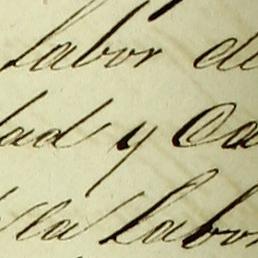 labor de
dad y Ca
lla labor